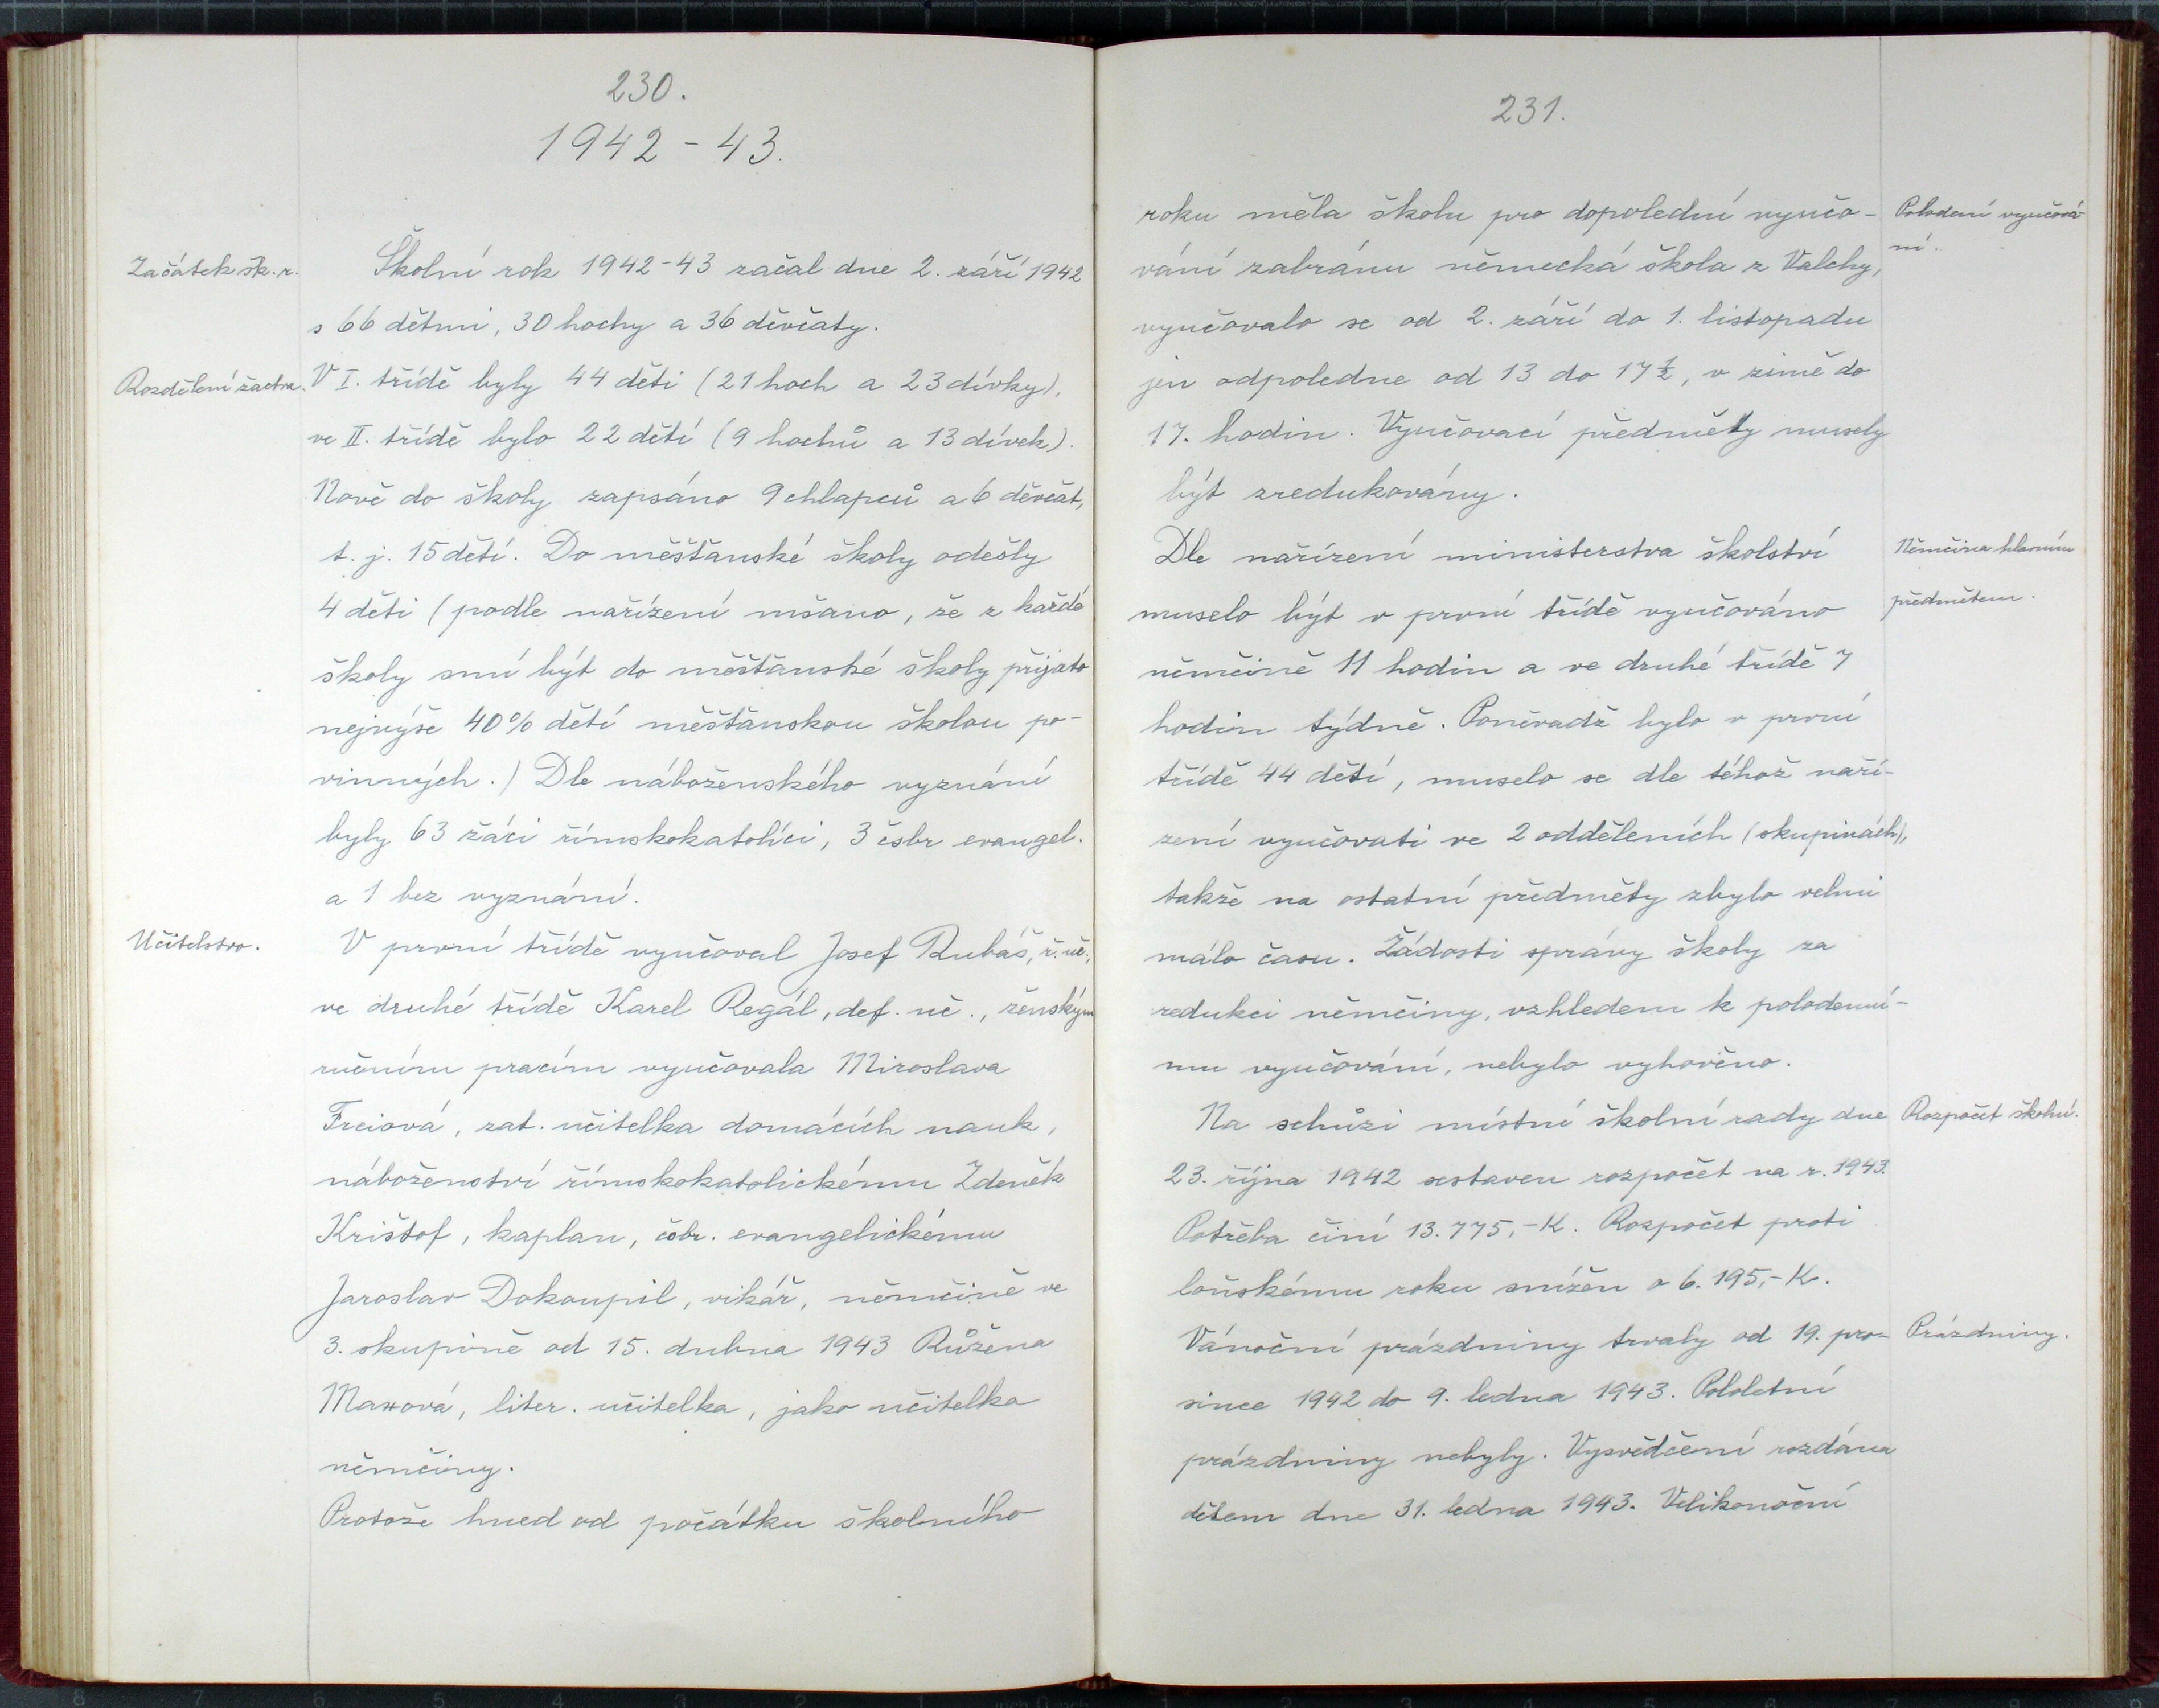 230.
1942-43.
Začátek šk. r.
Školní rok 1942-43 začal dne 2. září 1942
s 66 dětmi, 30 hochy a 36 děvčaty.
Rozdělení žactva.
V I. třídě byly 44 děti (21 hoch a 23 dívky),
ve II. třídě bylo 22 dětí (9 hochů a 13 dívek).
Nově do školy zapsáno 9 chlapců a 6 děvčat,
t. j. 15 dětí. Do měšťanské školy odešly
4 děti (podle nařízení mšano, že z každé
školy smí být do měšťanské školy přijato
nejvýše 40% dětí měšťanskou školou po-
vinných.) Dle náboženského vyznání
byly 63 žáci římskokatolíci, 3 čsbr evangel.
a 1 bez vyznání.
Učitelstvo.
V první třídě vyučoval Josef Rubáš, ř. uč.,
ve druhé třídě Karel Regál, def. uč., ženským
ručním pracím vyučovala Miroslava
Freiová, zat. učitelka domácích nauk,
náboženství římskokatolickému Zdeněk
Krištof, kaplan, čsbr. evangelickému
Jaroslav Dokoupil, vikář, němčině ve
3. skupině od 15. dubna 1943 Růžena
Maxová, liter. učitelka, jako učitelka
němčiny.
Protože hned od počátku školního
231.
roku měla školu pro dopolední vyučo-
Polodení vyučová-
ní.
vání zabránu německá škola z Valchy,
vyučovalo se od 2. září do 1. listopadu
jen odpoledne od 13 do 17½, v zimě do
17. hodin. Vyučovací předměty musely
být zredukovány.
Dle nařízení ministerstva školství
Němčina hlavním
předmětem.
muselo být v první třídě vyučováno
němčině 11 hodin a ve druhé třídě 7
hodin týdně. Poněvadž bylo v první
třídě 44 dětí, muselo se dle téhož naří-
zení vyučovati ve 2 odděleních (skupinách),
takže na ostatní předměty zbylo velmi
málo času. Žádosti správy školy za
redukci němčiny, vzhledem k polodenní-
mu vyučování, nebylo vyhověno.
Na schůzi místní školní rady dne
Rozpočet školní.
23. října 1942 sestaven rozpočet na r. 1943.
Potřeba činí 13.775,-K. Rozpočet proti
loňskému roku snížen o 6.195,-K.
Vánoční prázdniny trvaly od 19. pro-
Prázdniny.
since 1942 do 9. ledna 1943. Pololetní
prázdniny nebyly. Vysvědčení rozdána
dětem dne 31. ledna 1943. Velikonoční